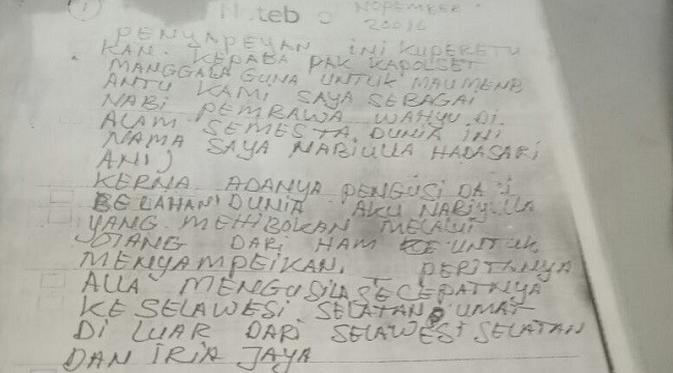 1 Noteb NOPEMBER
20016
PENYAPEYAN INI KUPERETU
KAN. KEPABA PAK KAPOLSET
MANGGALA GUNA UNTUK MAUMENB
ANTU KAMI SAYA SEBAGAI
NABI PEMBAWA WAHYU DI
ALAM SEMESTA. DUNIA INI
NAMA SAYA NABIULLA HADASARI
ANI)
KERNA ADANYA PENGUSI DA I
BELAHAN DUNIA AKU NABIYULLA
YANG MEHIBOKAN MELALUI
DARI HAM KE UNTUK
MENYAMPEIKAN. PERITANYA
ALLA MENGUSILA SECEPATNYA
KE SELAWESI SELATAN UMAT
DI LUAR DARI SELAWESI SELATAN
DAN IRIA JAYA